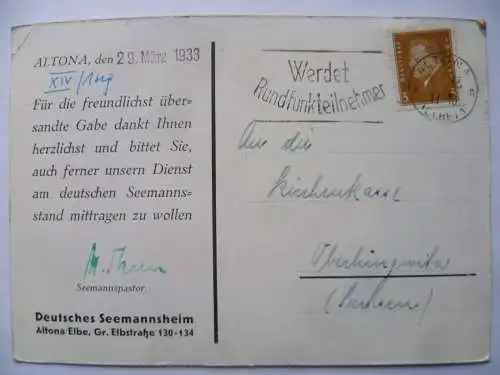 ALTONA, den 29. März 1933
XIV/
Für die freundlichst über=
sandte Gabe dankt Ihnen
herzlichst und bittet Sie,
auch ferner unsern Dienst
am deutschen Seemanns=
stand mittragen zu wollen
Seemannspastor.
Deutsches Seemannsheim
Altona/Elbe, Gr. Elbstraße 130-134
Werdet
Rundfunkteilnehmer
ALTONA
An die
Kirchenkasse
(Sachsen)